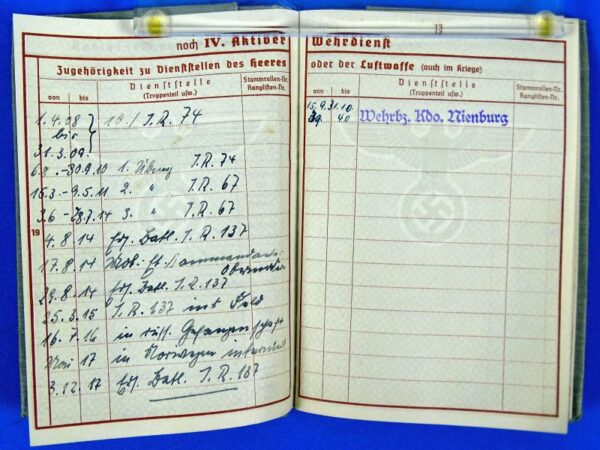 noch IV. Aktiver
Zugehörigkeit zu Dienststellen des Heeres
von bis
Dienststelle
(Truppenteil usw.)
Stammrollen-Nr.
Ranglisten-Nr.
1.4.08
bis
31.3.09.
10./ I.R. 74
-30.9.10 1. Übung I.R. 74
15.3.-9.5.11 2. " I.R. 67
3.6.- .7.14 3. " I.R. 67
19
4.8.14 Ers. Batl. I.R. 137
17.8.14 Mob. Et.
29.8.14 Ers. Batl. I.R. 137
25.3.15 I.R. 137 ins Feld
16.7.16 in russ. Gefangenschaft
Mai 17 in Norwegen interniert
3.12.17 Ers. Batl. I.R. 137
13
Wehrdienst
oder der Luftwaffe (auch im Kriege)
von bis
Dienststelle
(Truppenteil usw.)
Stammrollen-Nr.
Ranglisten-Nr.
15.9. 31.10.
39 40 Wehrbz. Kdo. Nienburg